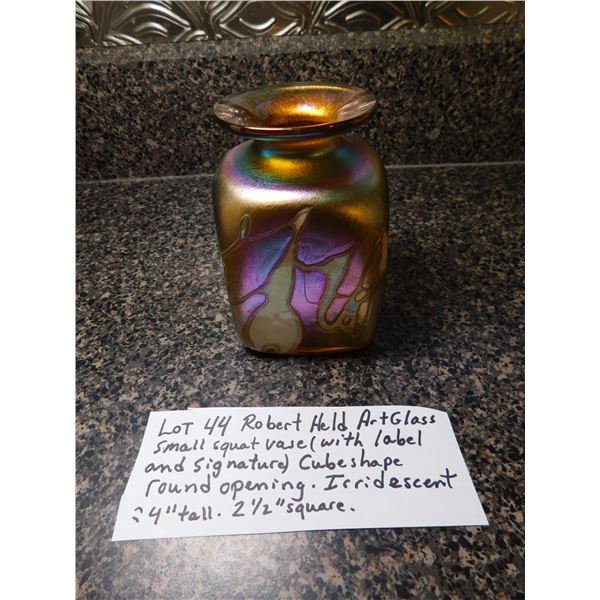 LOT 44 Robert Held ArtGlass
small squat vase (with label
and signature) Cubeshape
round opening. Irridescent
≈ 4" tall. 2 1/2" square.